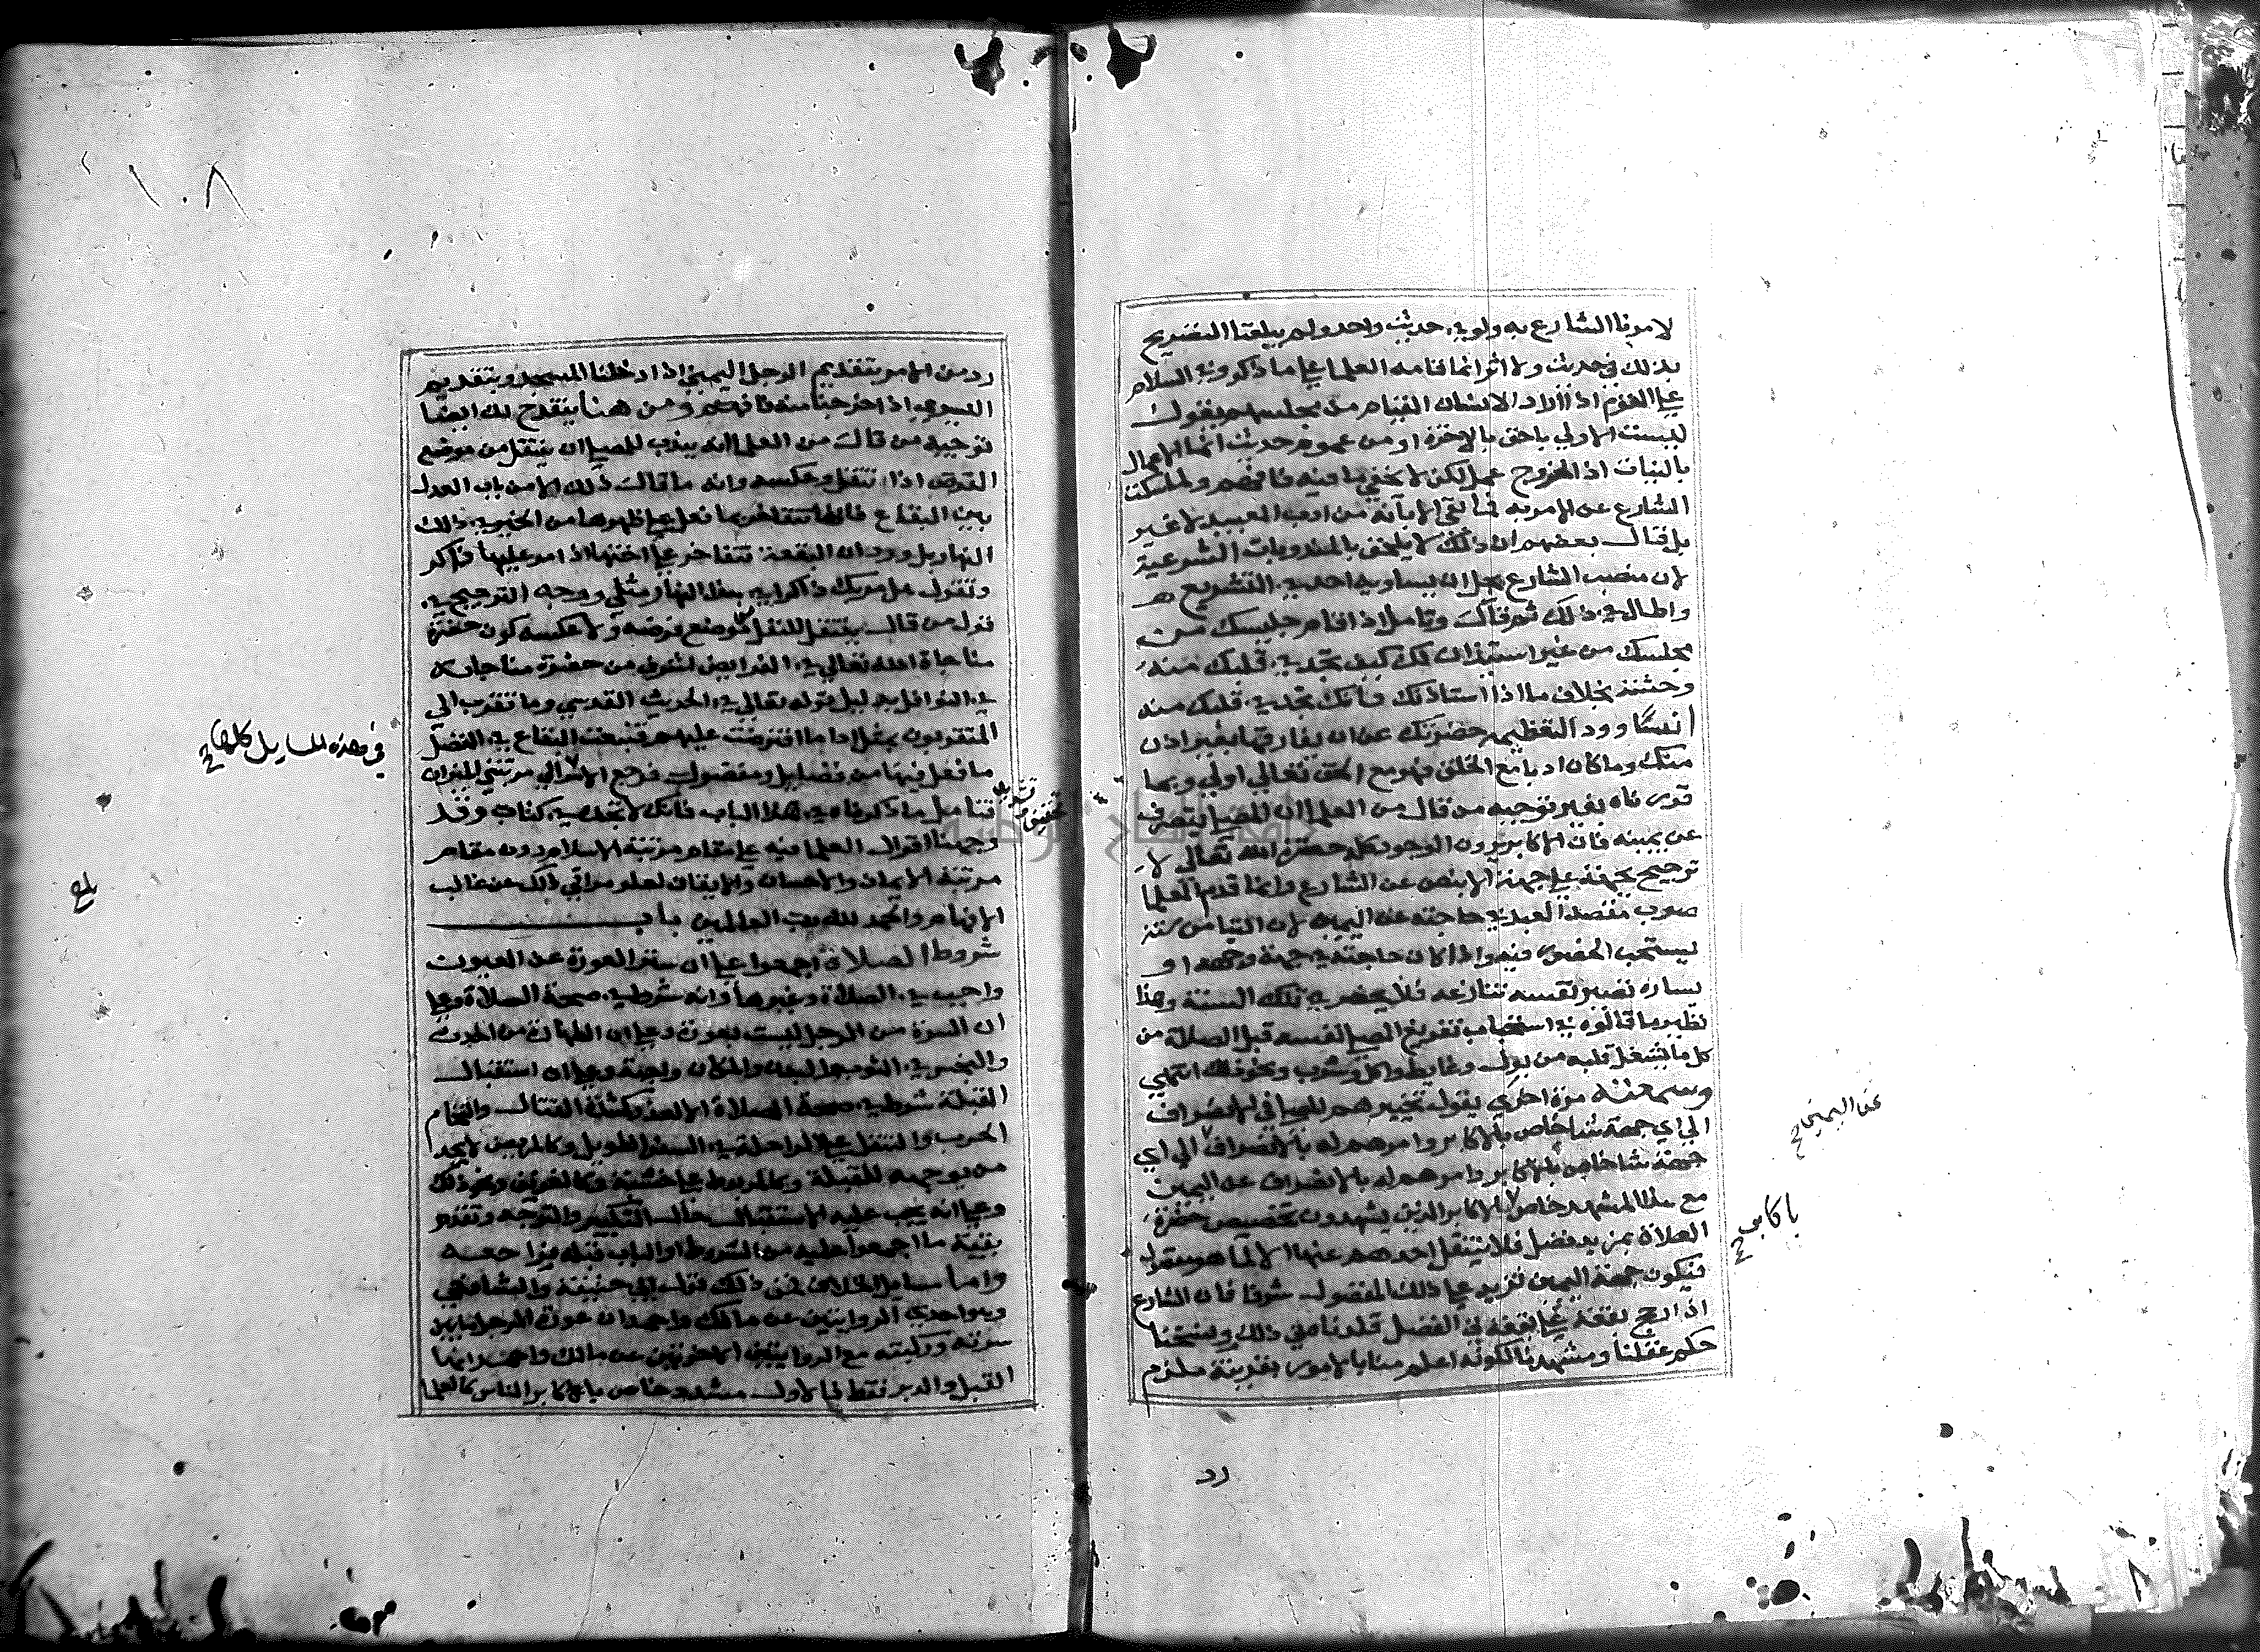 لامرنا الشارع به ولو في حديث واحد ولم يبلغنا التصريح
بذلك في حديث ولا اثر انما قامه العلما علي ما ذكروه في السلام
علي القوم اذا اراد الانسان القيام من مجلسهم بقوله
ليست الاولي باحق بالاخرة او من عموم حديث انما الاعمال
بالنيات اذ الخروج عمل لكن لا يخفي ما فيه فافهم ولما سكت
الشارع عن الامر به فما بقي الا بانه من ادب العبيد لا غير
بل قال بعضهم ان ذلك لا يلحق بالمندوبات الشرعية
لان منصب الشارع يجل ان يساويه احد في التشريع
واطال في ذلك ثم قال وتامل اذا قام جليسك من
مجلسك من غير استيذان لك كيف تجد في قلبك منه
وحشة بخلاف ما اذا استاذنك فانك تجد في قلبك منه
انسا وود التعظيم حضرتك عن ان يفارقها بغير اذن
منك وما كان ادبا مع الخلق فهو مع الحق تعالي اولي وبما
قررناه يفهم توجيه من قال من العلما ان المصلي ينصرف
عن يمينه فان الاكابر يرون الوجود كله حضرة الله تعالي لا
ترجيح لجهة علي جهة الا بنص عن الشارع وانما قدم العلما
صوب مقصد العبد في حاجته عن اليمين لان التيامن سنة
يستحب الحضور فيه واذا كان حاجته في جهة وجهه او
يساره تصير نفسه تنازعه فلا يحضر في تلك السنة وهذا
نظير ما قالوه في استحباب تفريغ المصلي نفسه قبل الصلاة من
كل ما يشغل قلبه من بول وغايط واكل وشرب ونحو ذلك انتهي
وسمعته مرة اخري يقول تخييرهم للمصلي في الانصراف
الي اي جهة شا خاص بالاكابر وامرهم له بالانصراف الي اي
جهة شا خاص بالاكابر وامرهم له بالانصراف عن اليمين
مع هذا المشهد خاص بالاكابر الذين يشهدون تخصيص حضرة
الصلاة بمزيد فضل فلا ينتقل احدهم عنها الا لما هو مقرب
فيكون جهة اليمين تزيد علي ذلك المفضول شرفا فان الشارع
اذا رجح بقعة علي بقعة في الفضل قلدناه في ذلك ونسخنا
حكم عقلنا ومشهدنا لكونه اعلم منا بالامور بقرينة ملزم
عن اليمين صح
بالاكابر صح
رد
١٠٨
رد من الامر بتقديم الرجل اليمني اذا دخلنا المسجد وبتقديم
اليسري اذا خرجنا منه فافهم ومن هنا ينقدح لك ايضا
توجيه من قال من العلما انه يندب للمصلي ان ينتقل من موضع
الفرض اذا تنفل وعكسه وانه ما قال ذلك الا من باب العدل
بين البقاع فانها تتفاخر بما فعل علي ظهورها من الخير في ذلك
النهار بل ورد ان البقعة تتفاخر علي اختها اذا مر عليها ذاكر
وتقول هل مر بك ذاكر لله هذا النهار مثلي ووجه الترجيح في
قول من قال ينتقل للنفل من موضع فرضه ولا عكسه كون حضرة
مناجاة الله تعالي في الفرايض اشرف من حضرة مناجاته
في النوافل بدليل قوله تعالي في الحديث القدسي وما تقرب الي
المتقربون بمثل ادا ما افترضت عليهم فتبعت البقاع في الفضل
ما فعل فيها من فضايل ومفضول فرجع الامر الي مرتبتي الميزان
فتامل ما ذكرناه في هذا الباب فانك لا تجده في كتاب وقد
وجهنا اقوال العلما فيه علي مقام مرتبة الاسلام دون مقام
مرتبة الايمان والاحسان والايقان لعلو مراقي ذلك عن غالب
الافهام والحمد لله رب العالمين باب
شروط الصلاة اجمعوا علي ان ستر العورة عن العيون
واجب في الصلاة وغيرها وانه شرط في صحة الصلاة وعلي
ان السرة من الرجل ليست بعورة وعلي ان الطهارة من الحدث
والنجس في الثوب والبدن والمكان واجبة وعلي ان استقبال
القبلة شرط في صحة الصلاة الا لعذر كشدة القتال والتحام
الحرب والتنفل علي الراحلة في السفر الطويل وكالمريض لا يجد
من يوجهه للقبلة وكالمربوط علي خشبة وكالغريق ونحو ذلك
وعلي انه يجب عليه الاستقبال حال التكبير والتوجه وتقدم
بقية ما اجمعوا عليه من الشروط اول الباب قبله فراجعه
واما مسايل الخلاف فمن ذلك قول ابي حنيفة والشافعي
وهو احدي الروايتين عن مالك واحمد ان عورة الرجل ما بين
سرته وركبته مع الروايتين الاخرتين عن مالك واحمد انها
القبل والدبر فقط فالاول مشدد وخاص باكابر الناس كالعلما
في هذه المسايل كلها صح
تخفيف وتشديد
بلغ